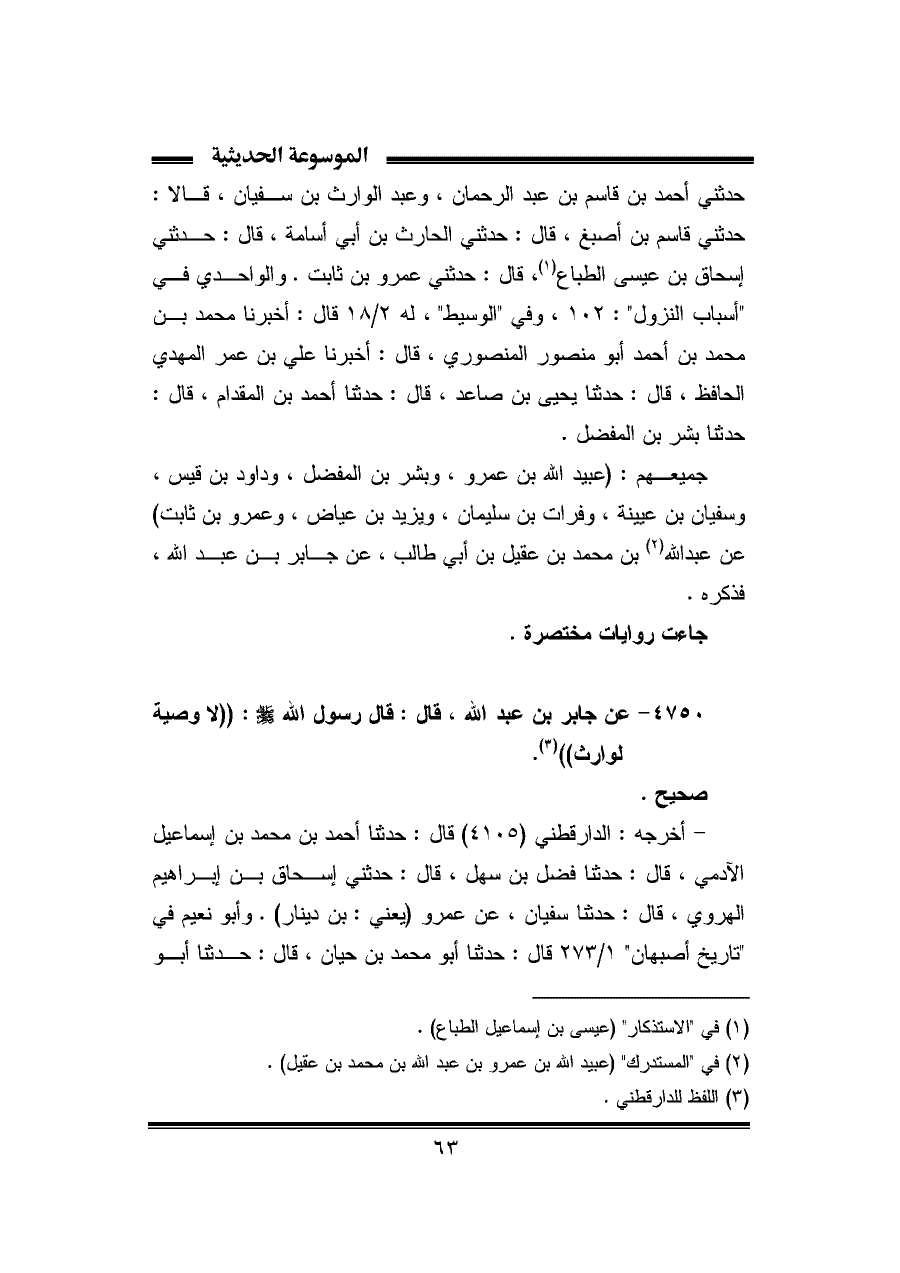 الموسوعة الحديثية
حدثني أحمد بن قاسم بن عبد الرحمان ، وعبد الوارث بن سفيان ، قالا :
حدثني قاسم بن أصبغ ، قال : حدثني الحارث بن أبي أسامة ، قال : حدثني
إسحاق بن عيسى الطباع(١)، قال : حدثني عمرو بن ثابت . والواحدي في
"أسباب النزول" : ١٠٢ ، وفي "الوسيط" ، له ١٨/٢ قال : أخبرنا محمد بن
محمد بن أحمد أبو منصور المنصوري ، قال : أخبرنا علي بن عمر المهدي
الحافظ ، قال : حدثنا يحيى بن صاعد ، قال : حدثنا أحمد بن المقدام ، قال :
حدثنا بشر بن المفضل .
جميعهم : (عبيد الله بن عمرو ، وبشر بن المفضل ، وداود بن قيس ،
وسفيان بن عيينة ، وفرات بن سليمان ، ويزيد بن عياض ، وعمرو بن ثابت)
عن عبدالله(٢) بن محمد بن عقيل بن أبي طالب ، عن جابر بن عبد الله ،
فذكره .
جاءت روايات مختصرة .
٤٧٥٠- عن جابر بن عبد الله ، قال : قال رسول الله ﷺ : ((لا وصية
لوارث))(٣).
صحيح .
- أخرجه : الدارقطني (٤١٠٥) قال : حدثنا أحمد بن محمد بن إسماعيل
الآدمي ، قال : حدثنا فضل بن سهل ، قال : حدثني إسحاق بن إبراهيم
الهروي ، قال : حدثنا سفيان ، عن عمرو (يعني : بن دينار) . وأبو نعيم في
"تاريخ أصبهان" ٢٧٣/١ قال : حدثنا أبو محمد بن حيان ، قال : حدثنا أبو
(١) في "الاستذكار" (عيسى بن إسماعيل الطباع) .
(٢) في "المستدرك" (عبيد الله بن عمرو بن عبد الله بن محمد بن عقيل) .
(٣) اللفظ للدارقطني .
٦٣